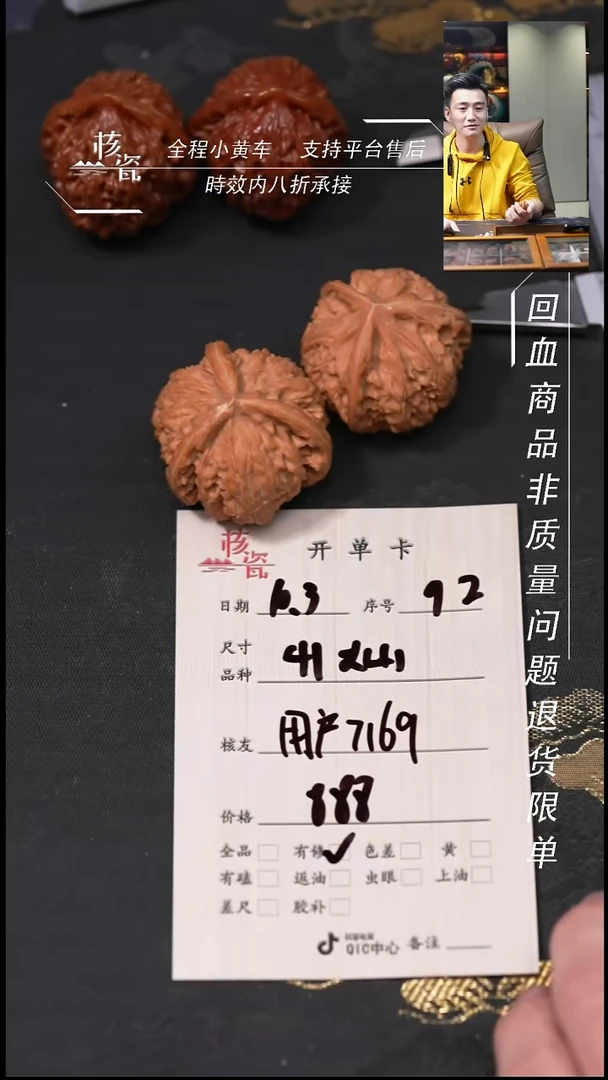 核瓷
全程小黄车 支持平台售后
時效内八折承接
回血商品非质量问题退货限单
核瓷
开单卡
日期 序号 92
尺寸
品种
41
核友 用户7169
价格 888
全品 有修 ✓ 色差 黄
有磕 返油 虫眼 上油
差尺 胶补
QIC中心 备注